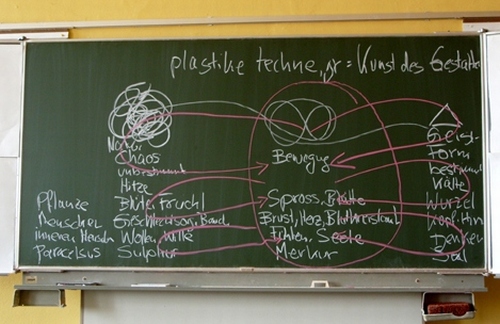 plastike techne, gr = Kunst des Gestalte
Natur Geist
Chaos Bewegung Form
unbestimmt bestimmt
Hitze Kälte
Pflanze Blüte, Frucht Spross, Blätter Wurzel
Menschen Bauch Brust, Herz, Kopf, Hirn
inneren Mensch Wollen, Wille Fühlen, Seele Denken
Paracelsus Sulphur Merkur Sal